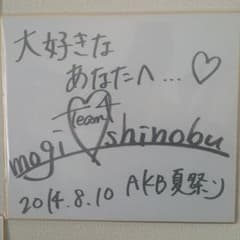 大好きな
あなたへ…♡
Team A
mogi shinobu
2014.8.10 AKB夏祭り